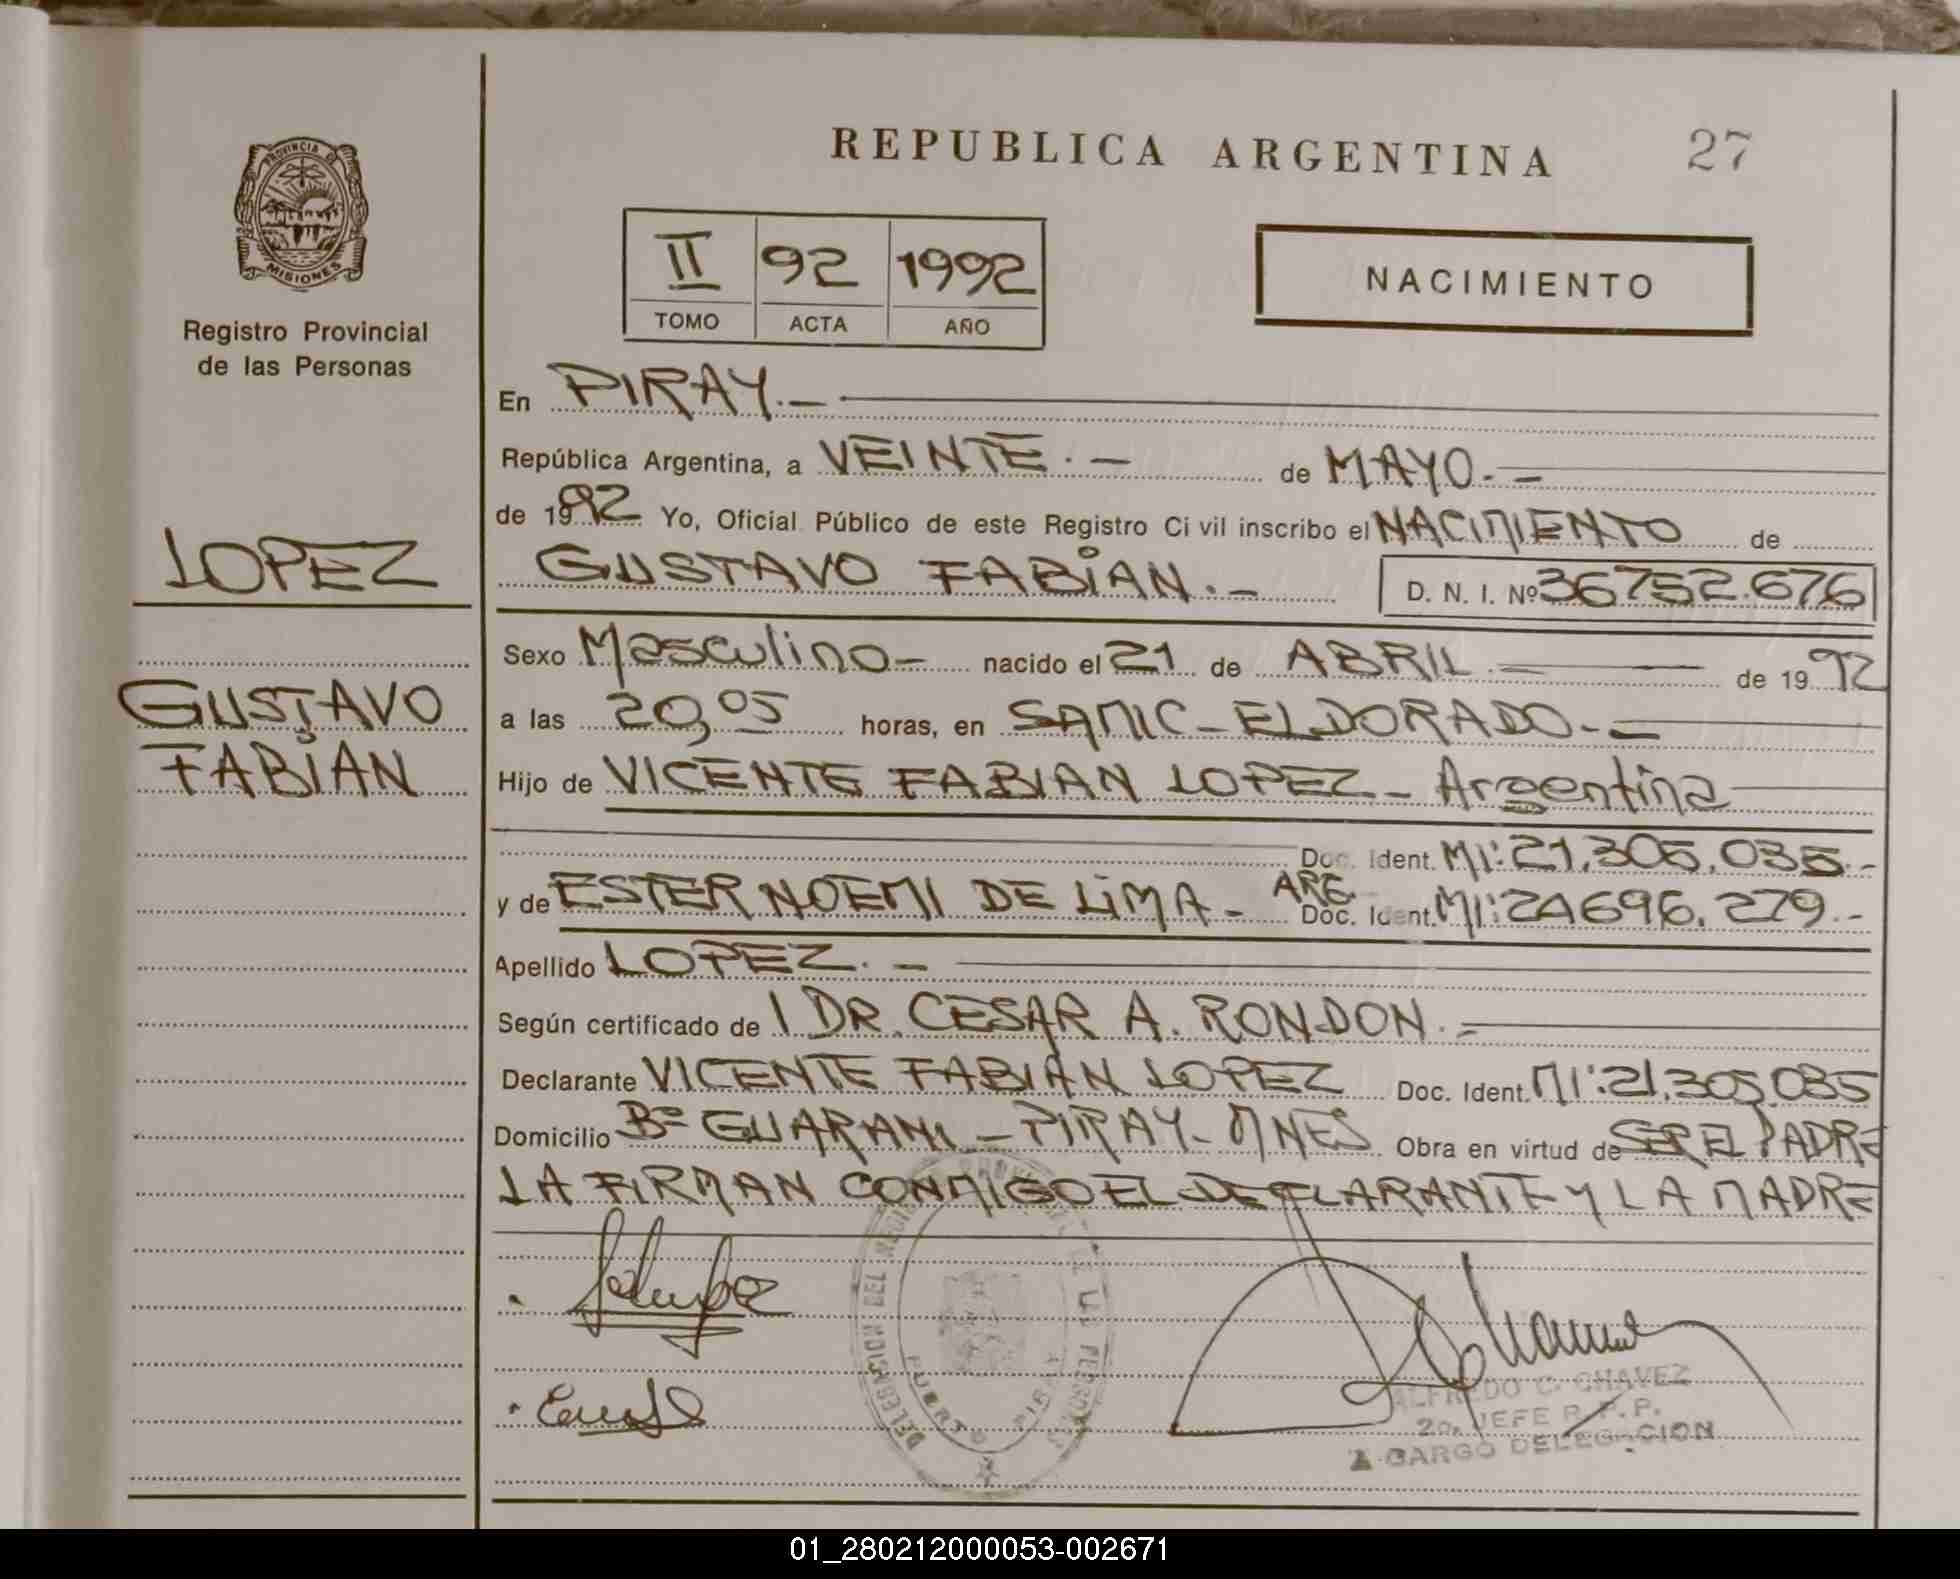 REPUBLICA ARGENTINA
27
PROVINCIA DE
MISIONES
Registro Provincial
de las Personas
II 92 1992
TOMO ACTA AÑO
NACIMIENTO
LOPEZ
GUSTAVO
FABIAN
En PIRAY.-
República Argentina, a VEINTE.- de MAYO.-
de 1992 Yo, Oficial Público de este Registro Civil inscribo el NACIMIENTO de
GUSTAVO FABIAN.- D. N. I. Nº 36752.676
Sexo Masculino- nacido el 21 de ABRIL.- de 1992
a las 20,05 horas, en SAMIC-ELDORADO.-
Hijo de VICENTE FABIAN LOPEZ- Argentina
Doc. Ident. MI:21.305.035.-
y de ESTER NOEMI DE LIMA- ARG. Doc. Ident. MI:24696.279.-
Apellido LOPEZ.-
Según certificado de 1 DR. CESAR A. RONDON.-
Declarante VICENTE FABIAN LOPEZ Doc. Ident. MI:21.305.035
Domicilio Bº GUARANI-PIRAY-MNES Obra en virtud de SER EL PADRE
LA FIRMAN CONMIGO EL DECLARANTE Y LA MADRE
ALFREDO C. CHAVEZ
2o. JEFE R.P.P.
A CARGO DELEGACION
01_280212000053-002671